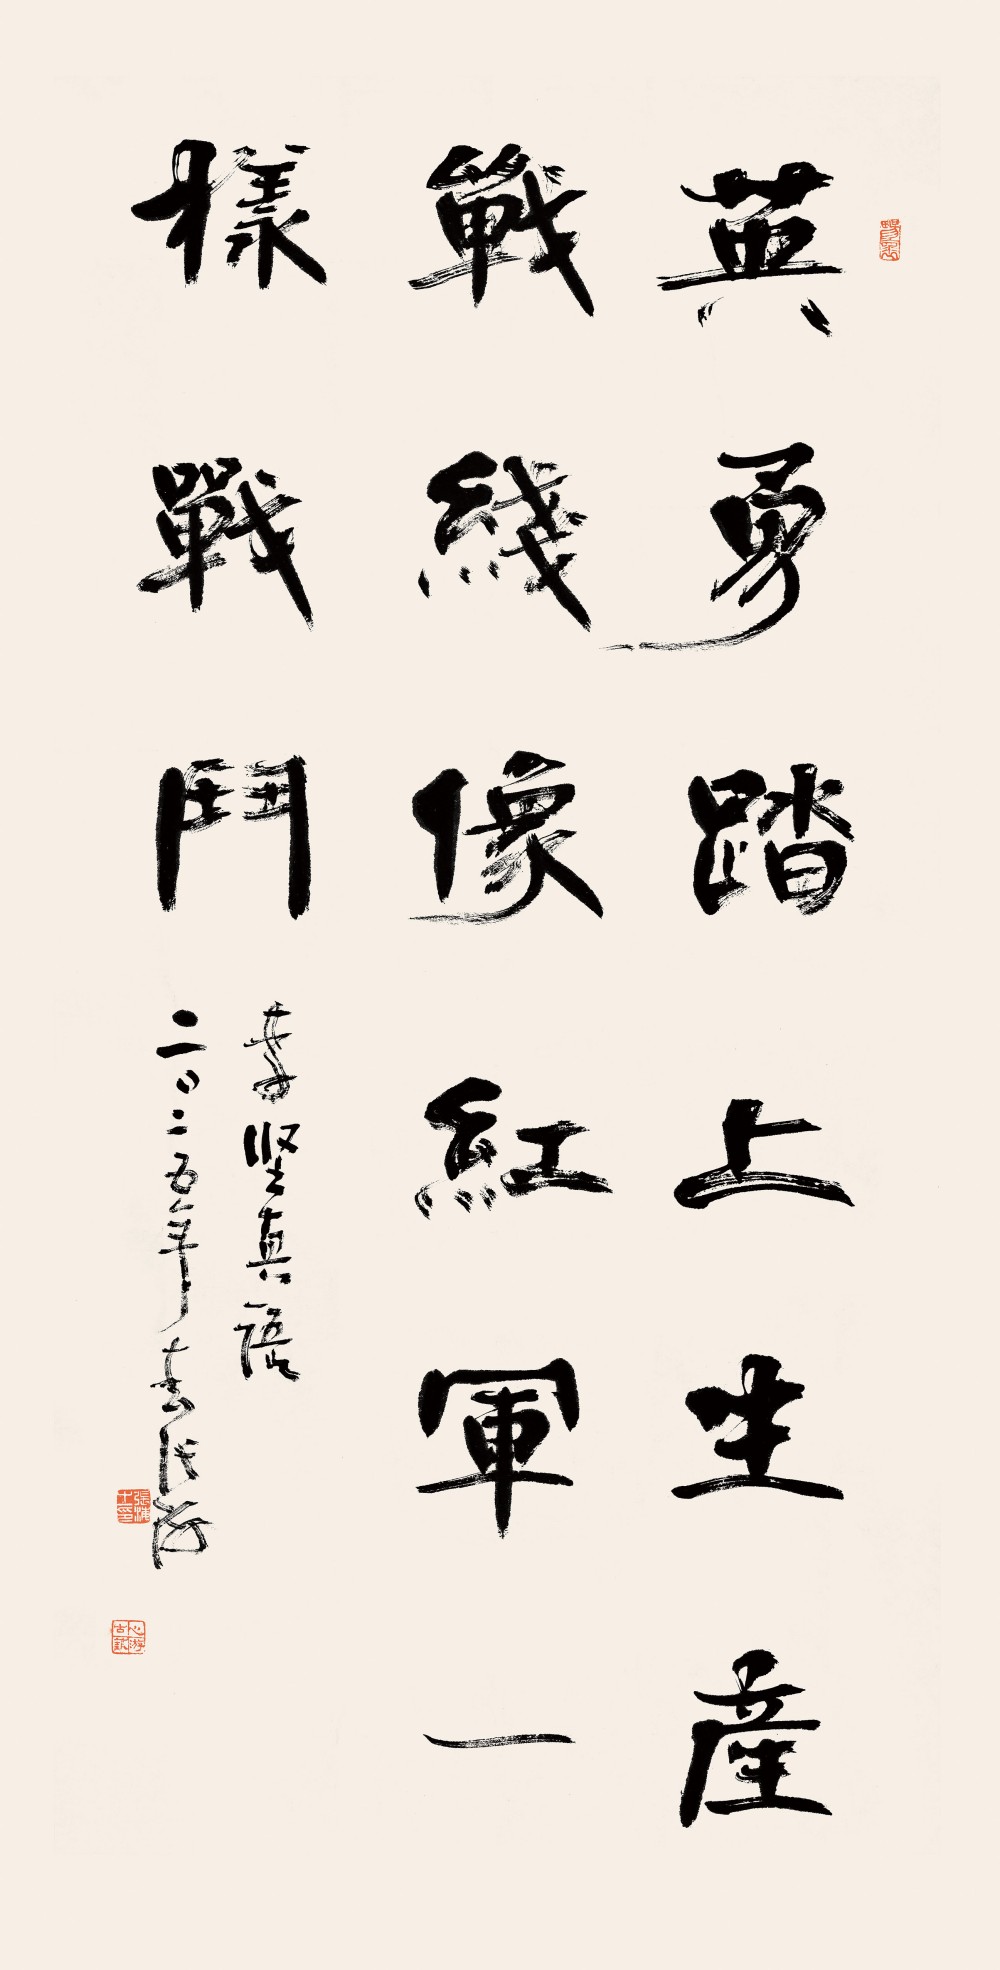 英勇踏上生產
戰綫像紅軍一
樣戰鬥
李坚真語
二〇二五年